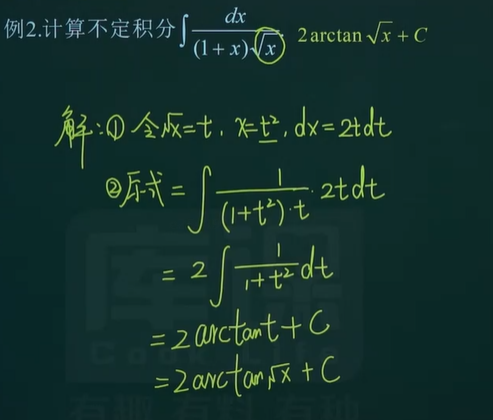 例2.计算不定积分∫dx/((1+x)√x) 2arctan√x+C
解:① 令√x=t, x=t², dx=2tdt
②原式=∫1/((1+t²)·t)·2tdt
=2∫1/(1+t²)dt
=2arctant+C
=2arctan√x+C